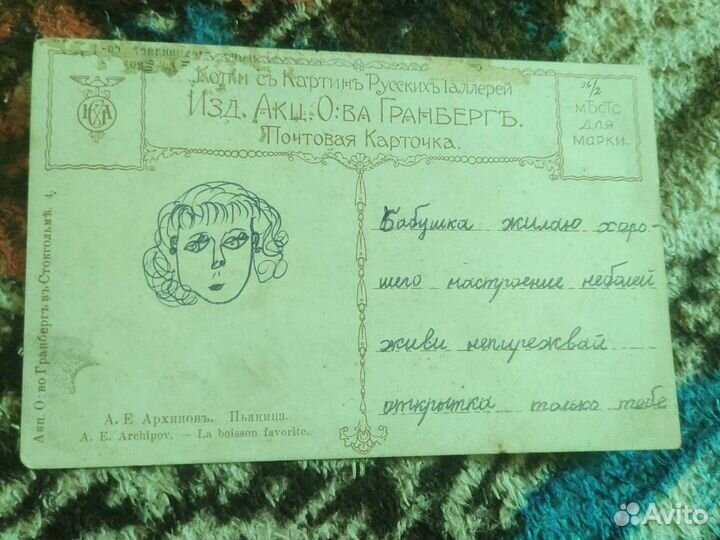 Копіи съ Картинъ Русскихъ Галлерей
Изд. Акц. О:ва Гранбергъ.
Почтовая Карточка.
16/2
мѣсто
для
марки.
Бабушка жилаю хоро-
шего настроение неболей
живи непирежвай
открытка только тебе
А. Е. Архиповъ. Пьяница.
A. E. Archipov. — La boisson favorite.
Акц. О: во Гранбергъ въ Стокгольмѣ. 4.
Avito